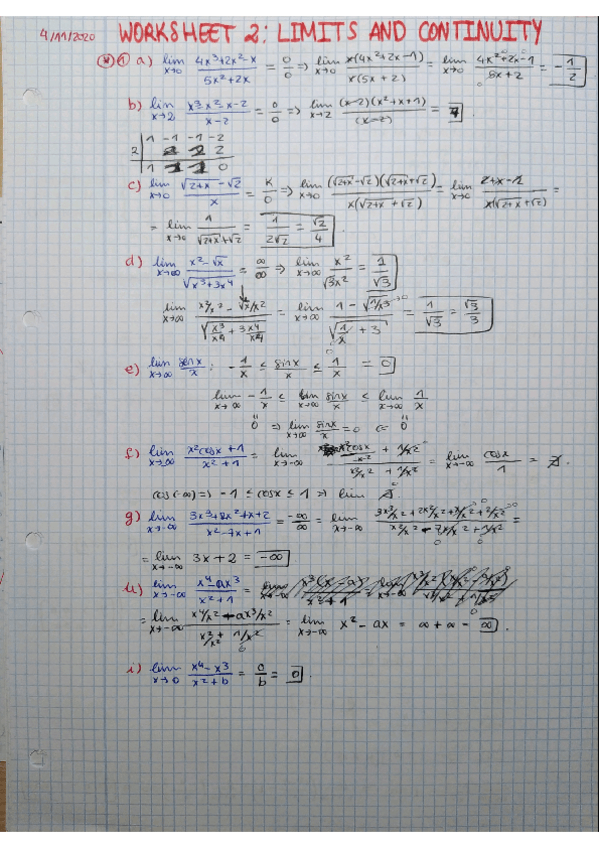 4/11/2020 WORKSHEET 2: LIMITS AND CONTINUITY
* 1 a) lim x→0 (4x³+2x²-x)/(5x²+2x) = 0/0 => lim x→0 x(4x²+2x-1)/x(5x+2) = lim x→0 (4x²+2x-1)/(5x+2) = -1/2
b) lim x→2 (x³-x²-x-2)/(x-2) = 0/0 => lim x→2 (x-2)(x²+x+1)/(x-2) = 7.
1 -1 -1 -2
2 | 2 2 2
1 1 1 0
c) lim x→0 (√(2+x) - √2)/x = K/0 => lim x→0 (√(2+x)-√2)(√(2+x)+√2)/x(√(2+x)+√2) = lim x→0 (2+x-2)/x(√(2+x)+√2) =
= lim x→0 1/(√(2+x)+√2) = 1/(2√2) = √2/4
d) lim x→∞ (x²-√x)/√(x³+3x⁴) = ∞/∞ => lim x→∞ x²/(√3x²) = 1/√3
lim x→∞ (x²/x² - √x/x²)/√(x³/x⁴ + 3x⁴/x⁴) = lim x→∞ (1 - √(1/x³))/√(1/x + 3) = 1/√3 = √3/3
e) lim x→∞ sinx/x : -1/x ≤ sinx/x ≤ 1/x = 0
lim x→∞ -1/x ≤ lim x→∞ sinx/x ≤ lim x→∞ 1/x
0 => lim x→∞ sinx/x = 0 <= 0
f) lim x→-∞ (x²cosx+1)/(x²+1) = lim x→-∞ (x²cosx/x² + 1/x²)/(x²/x² + 1/x²) = lim x→-∞ cosx/1 = ∄.
cos(-∞) => -1 ≤ cosx ≤ 1 => lim ∄.
g) lim x→-∞ (3x³+2x²+x+2)/(x²-7x+1) = -∞/∞ = lim x→-∞ (3x³/x²+2x²/x²+x/x²+2/x²)/(x²/x² - 7x/x² + 1/x²) =
= lim x→-∞ 3x+2 = -∞
h) lim x→-∞ (x⁴-ax³)/(x²+1) =
= lim x→-∞ (x⁴/x² - ax³/x²)/(x²/x² + 1/x²) = lim x→-∞ x²-ax = ∞+∞ = ∞.
i) lim x→0 (x⁴-x³)/(x²+b) = 0/b = 0.